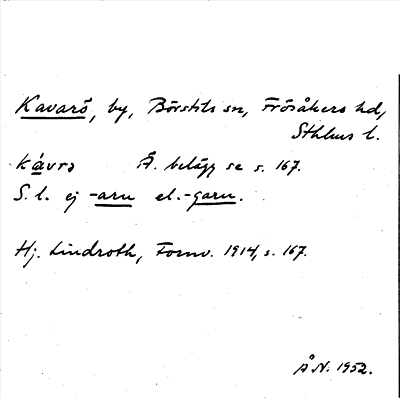 Kavarö, by, Börstils sn, Frösåkers hd,
Sthlms l.
kávrə Ä. belägg se s. 167.
S. l. ej -arn el. -garn.
Hj. Lindroth, Fornv. 1914, s. 167.
Å N. 1952.